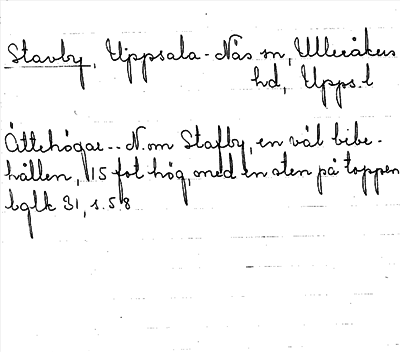 Stavby, Uppsala-Näs sn, Ulleråkers
hd, Upps. l
Ättehögar.. N. om Stafby, en väl bibe-
hållen, 15 fot hög, med en sten på toppen
bglk 31, s. 58